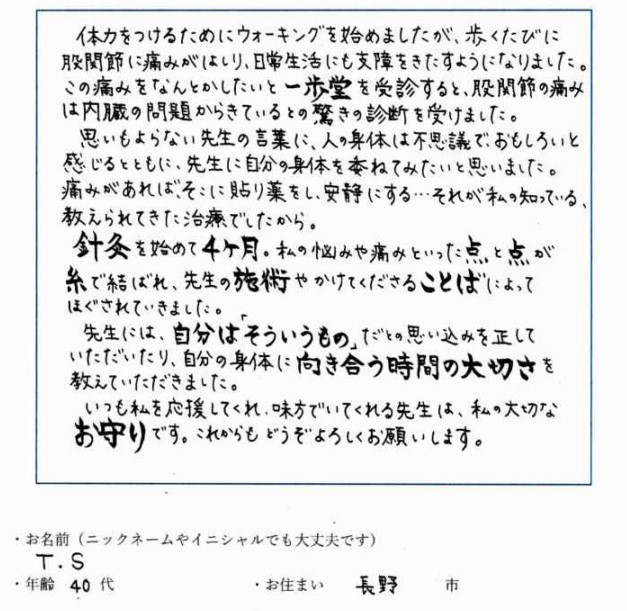 体力をつけるためにウォーキングを始めましたが、歩くたびに
股関節に痛みがはしり、日常生活にも支障をきたすようになりました。
この痛みをなんとかしたいと一歩堂を受診すると、股関節の痛み
は内臓の問題からきているとの驚きの診断を受けました。
思いもよらない先生の言葉に、人の身体は不思議で、おもしろいと
感じるとともに、先生に自分の身体を委ねてみたいと思いました。
痛みがあれば、そこに貼り薬をし、安静にする…それが私の知っている、
教えられてきた治療でしたから。
針灸を始めて4ヶ月。私の悩みや痛みといった点と点が
糸で結ばれ、先生の施術やかけてくださることばによって
ほぐされていきました。
先生には、自分は「そういうもの」だとの思い込みを正して
いただいたり、自分の身体に向き合う時間の大切さを
教えていただきました。
いつも私を応援してくれ、味方でいてくれる先生は、私の大切な
お守りです。これからもどうぞよろしくお願いします。
・お名前（ニックネームやイニシャルでも大丈夫です）
T.S
・年齢 40 代 ・お住まい 長野 市